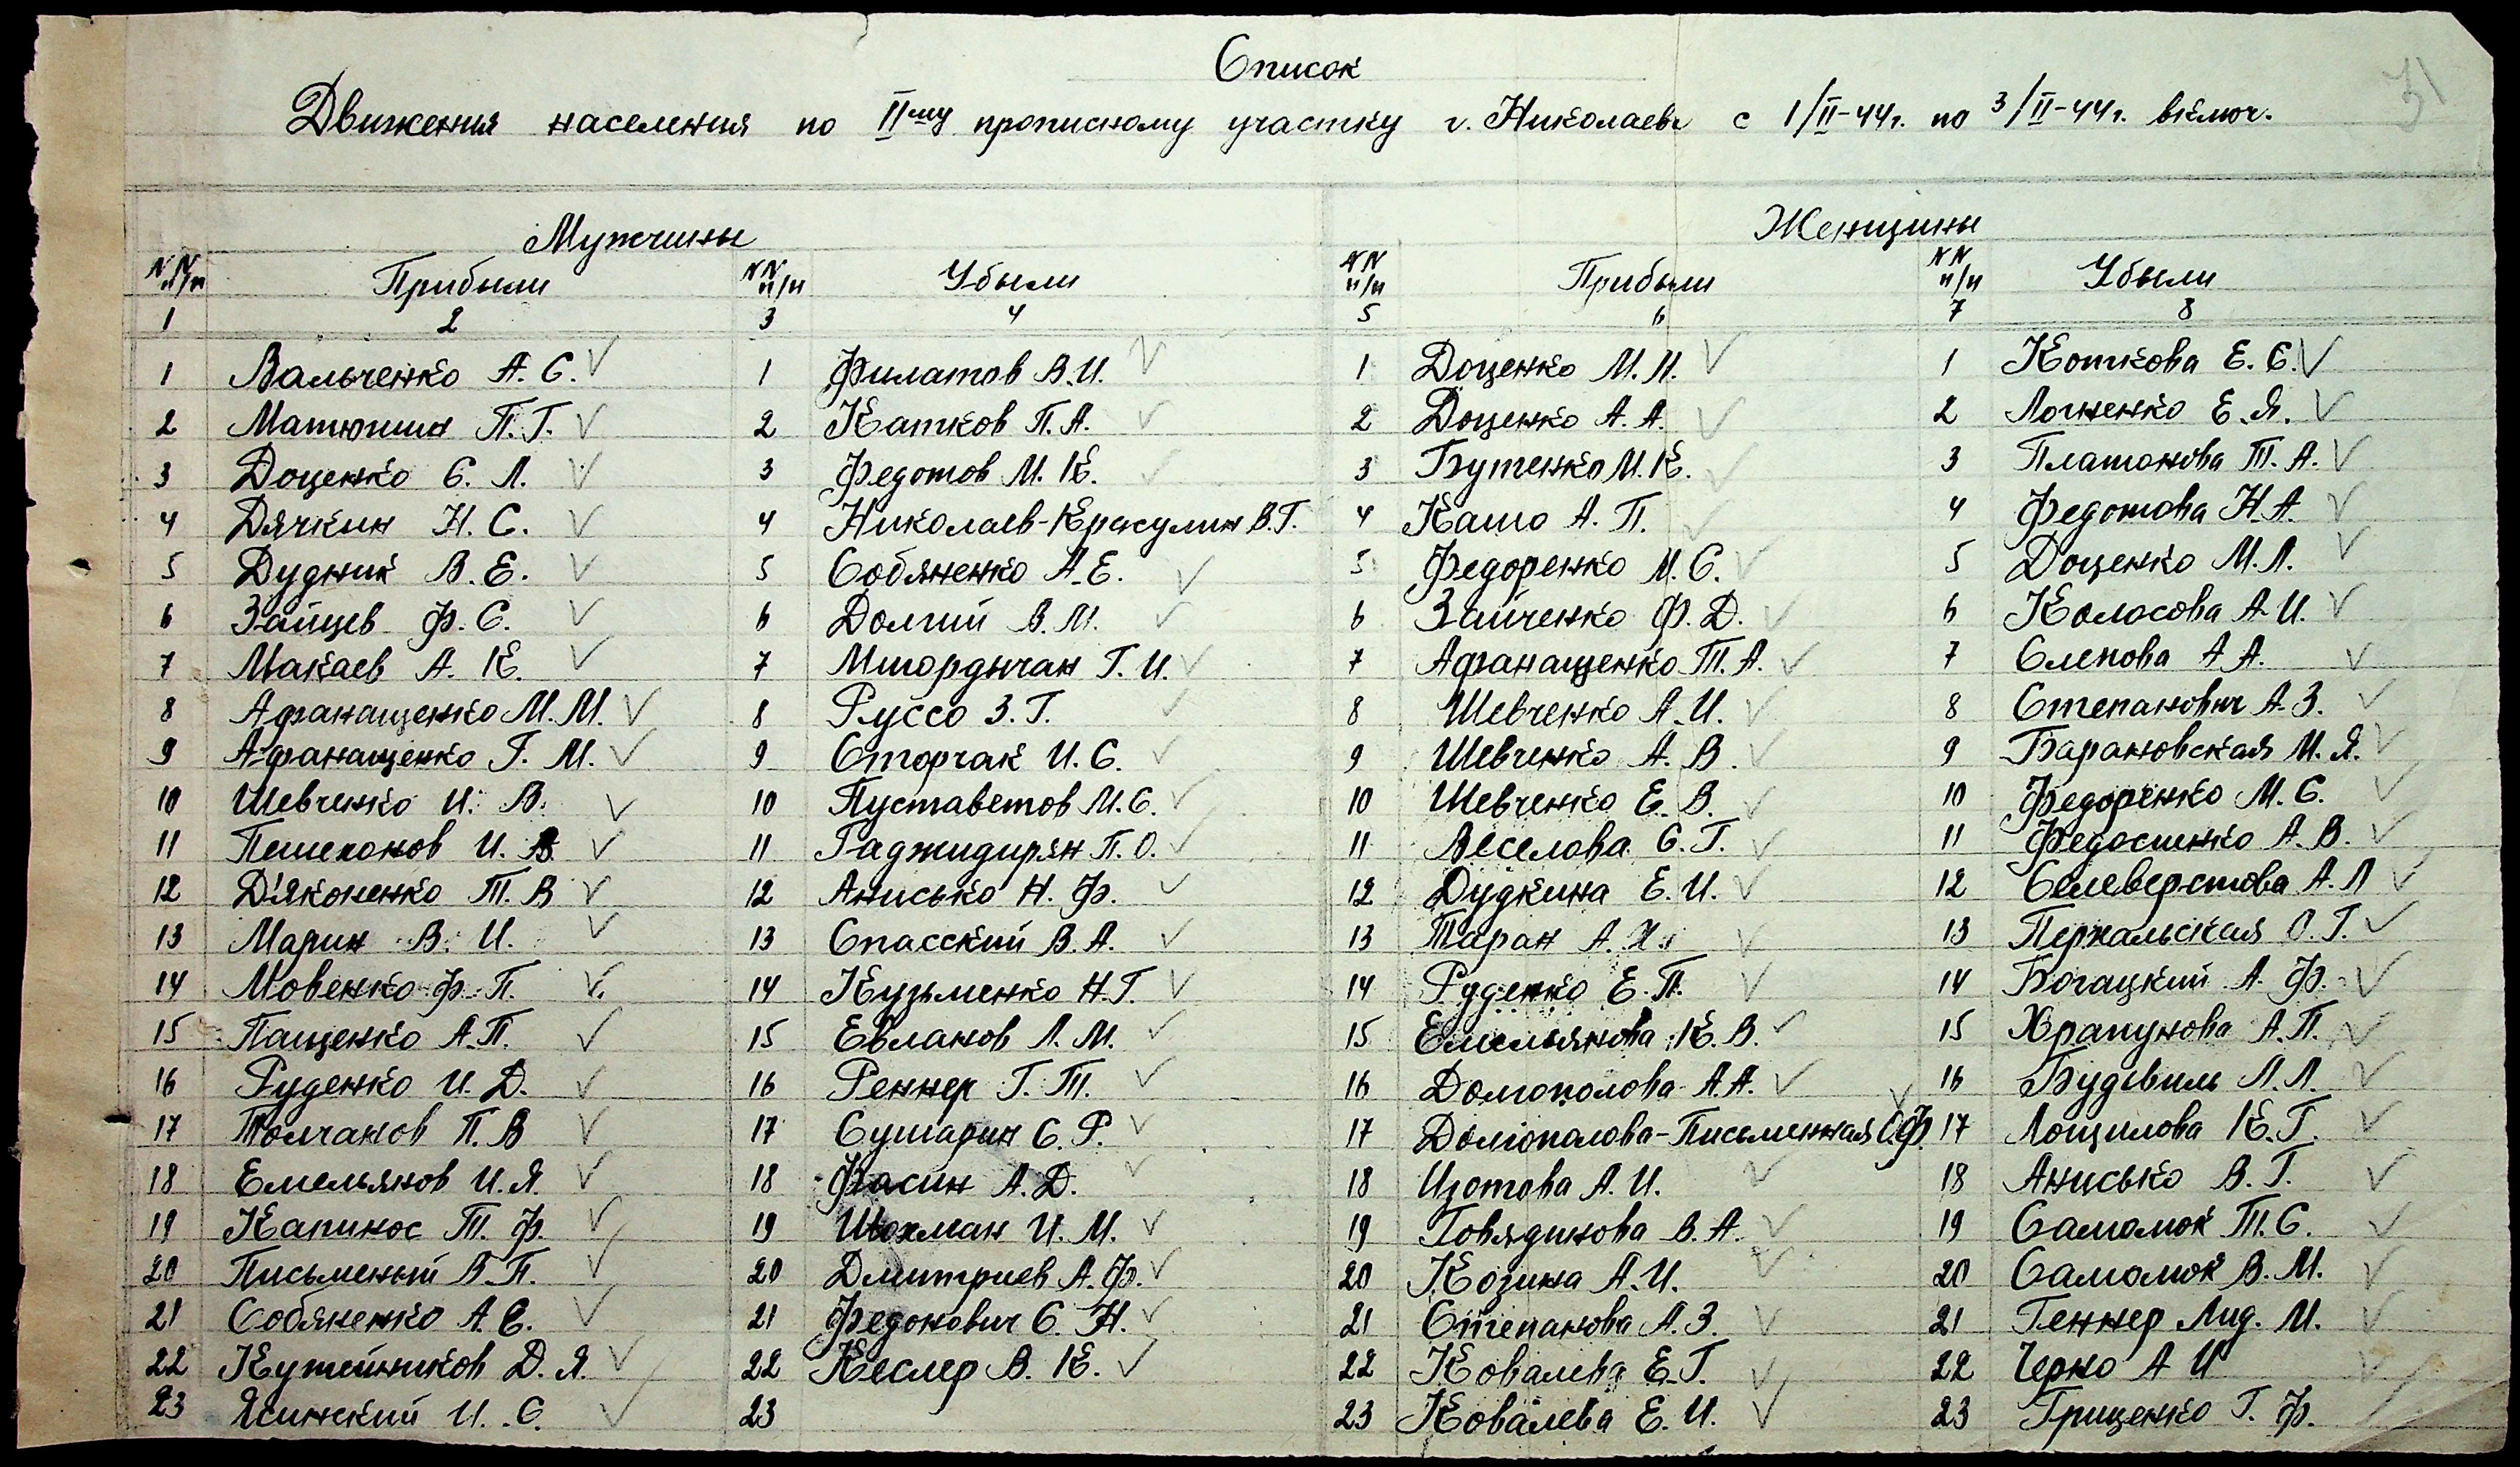 31
Список
Движения населения по IIму прописному участку г. Николаева с 1/II-44г. по 3/II-44г. включ.
Мужчины Женщины
NN п/п Прибыли NN п/п Убыли NN п/п Прибыли NN п/п Убыли
1 2 3 4 5 6 7 8
1 Вальченко А. С. 1 Филатов В.И. 1 Доценко М. 1 Коткова Е. С.
2 Матюшин П.Г. 2 Катков П.А. 2 Доценко А. А. 2 Е.Я.
3 Доценко С. Л. 3 Федотов М. К. 3 Бутенко М. К. 3 Платонова Т. А.
4 Дячкин Н. С. 4 Николаев-Кракулин В.Г. 4 Кашо А. П. 4 Федотова Н.А.
5 Дудник В. Е. 5 Собяненко А.Е. 5 Федоренко М. С. 5 Доценко М.Л.
6 Зайцев Ф. С. 6 Долгий В. М. 6 Зайченко Ф. Д. 6 Колосова А И.
7 Макаев А. К. 7 Г. И. 7 Афанащенко Т. А. 7 Слепова А А.
8 Афанащенко М. М. 8 Руссо З. Г. 8 Шевченко А. И. 8 Степанович А. З.
9 Афанащенко Г. М. 9 Сторчак И. С. 9 Шевченко А. В. 9 Барановская М. Я.
10 Шевченко И. В. 10 Пуставетов М. С. 10 Шевченко Е. В. 10 Федоренко М. С.
11 Пешехонов И. В. 11 Гаджидирян П. О. 11 Веселова С. Г. 11 А. В.
12 Д'яконенко Т. В 12 Анисько Н. Ф. 12 Дудкина Е. И. 12 Селеверстова А. Л
13 Марин В. И. 13 Спасский В. А. 13 Таран А. 13 Перкальская О. Г.
14 Мовенко Ф. П. 14 Кузьменко Н.Г. 14 Руденко Е. П. 14 Богацкий А. Ф.
15 Пащенко А.П. 15 Евланов Л. М. 15 Емельянова К. В. 15 Храпунова А.П.
16 Руденко И. Д. 16 Реннер Г. Т. 16 Долгополова А.А. 16 Л. Л.
17 Толчанов П. В 17 Сушарин С. Р. 17 Долгополова-Письменная С.Ф 17 Лощилова К. Г.
18 Емельянов И. Я. 18 Фасин А. Д. 18 Изотова А. И. 18 Анисько В. Г.
19 Капинос Т. Ф. 19 Шохман И. М. 19 Говядинова В. А. 19 Самолюк Т. С.
20 Письменый В. П. 20 Дмитриев А. Ф. 20 Козина А. И. 20 Самолюк В. М.
21 Собяненко А. Е. 21 Федонович С. Н. 21 Степанова А. З. 21 Геннер Лид. М.
22 Кутейников Д. Я. 22 Кеслер В. К. 22 Ковалева Е. Г. 22 Черно А И
23 Ясинский И. С. 23 23 Ковалева Е. И. 23 Гриценко Г. Ф.